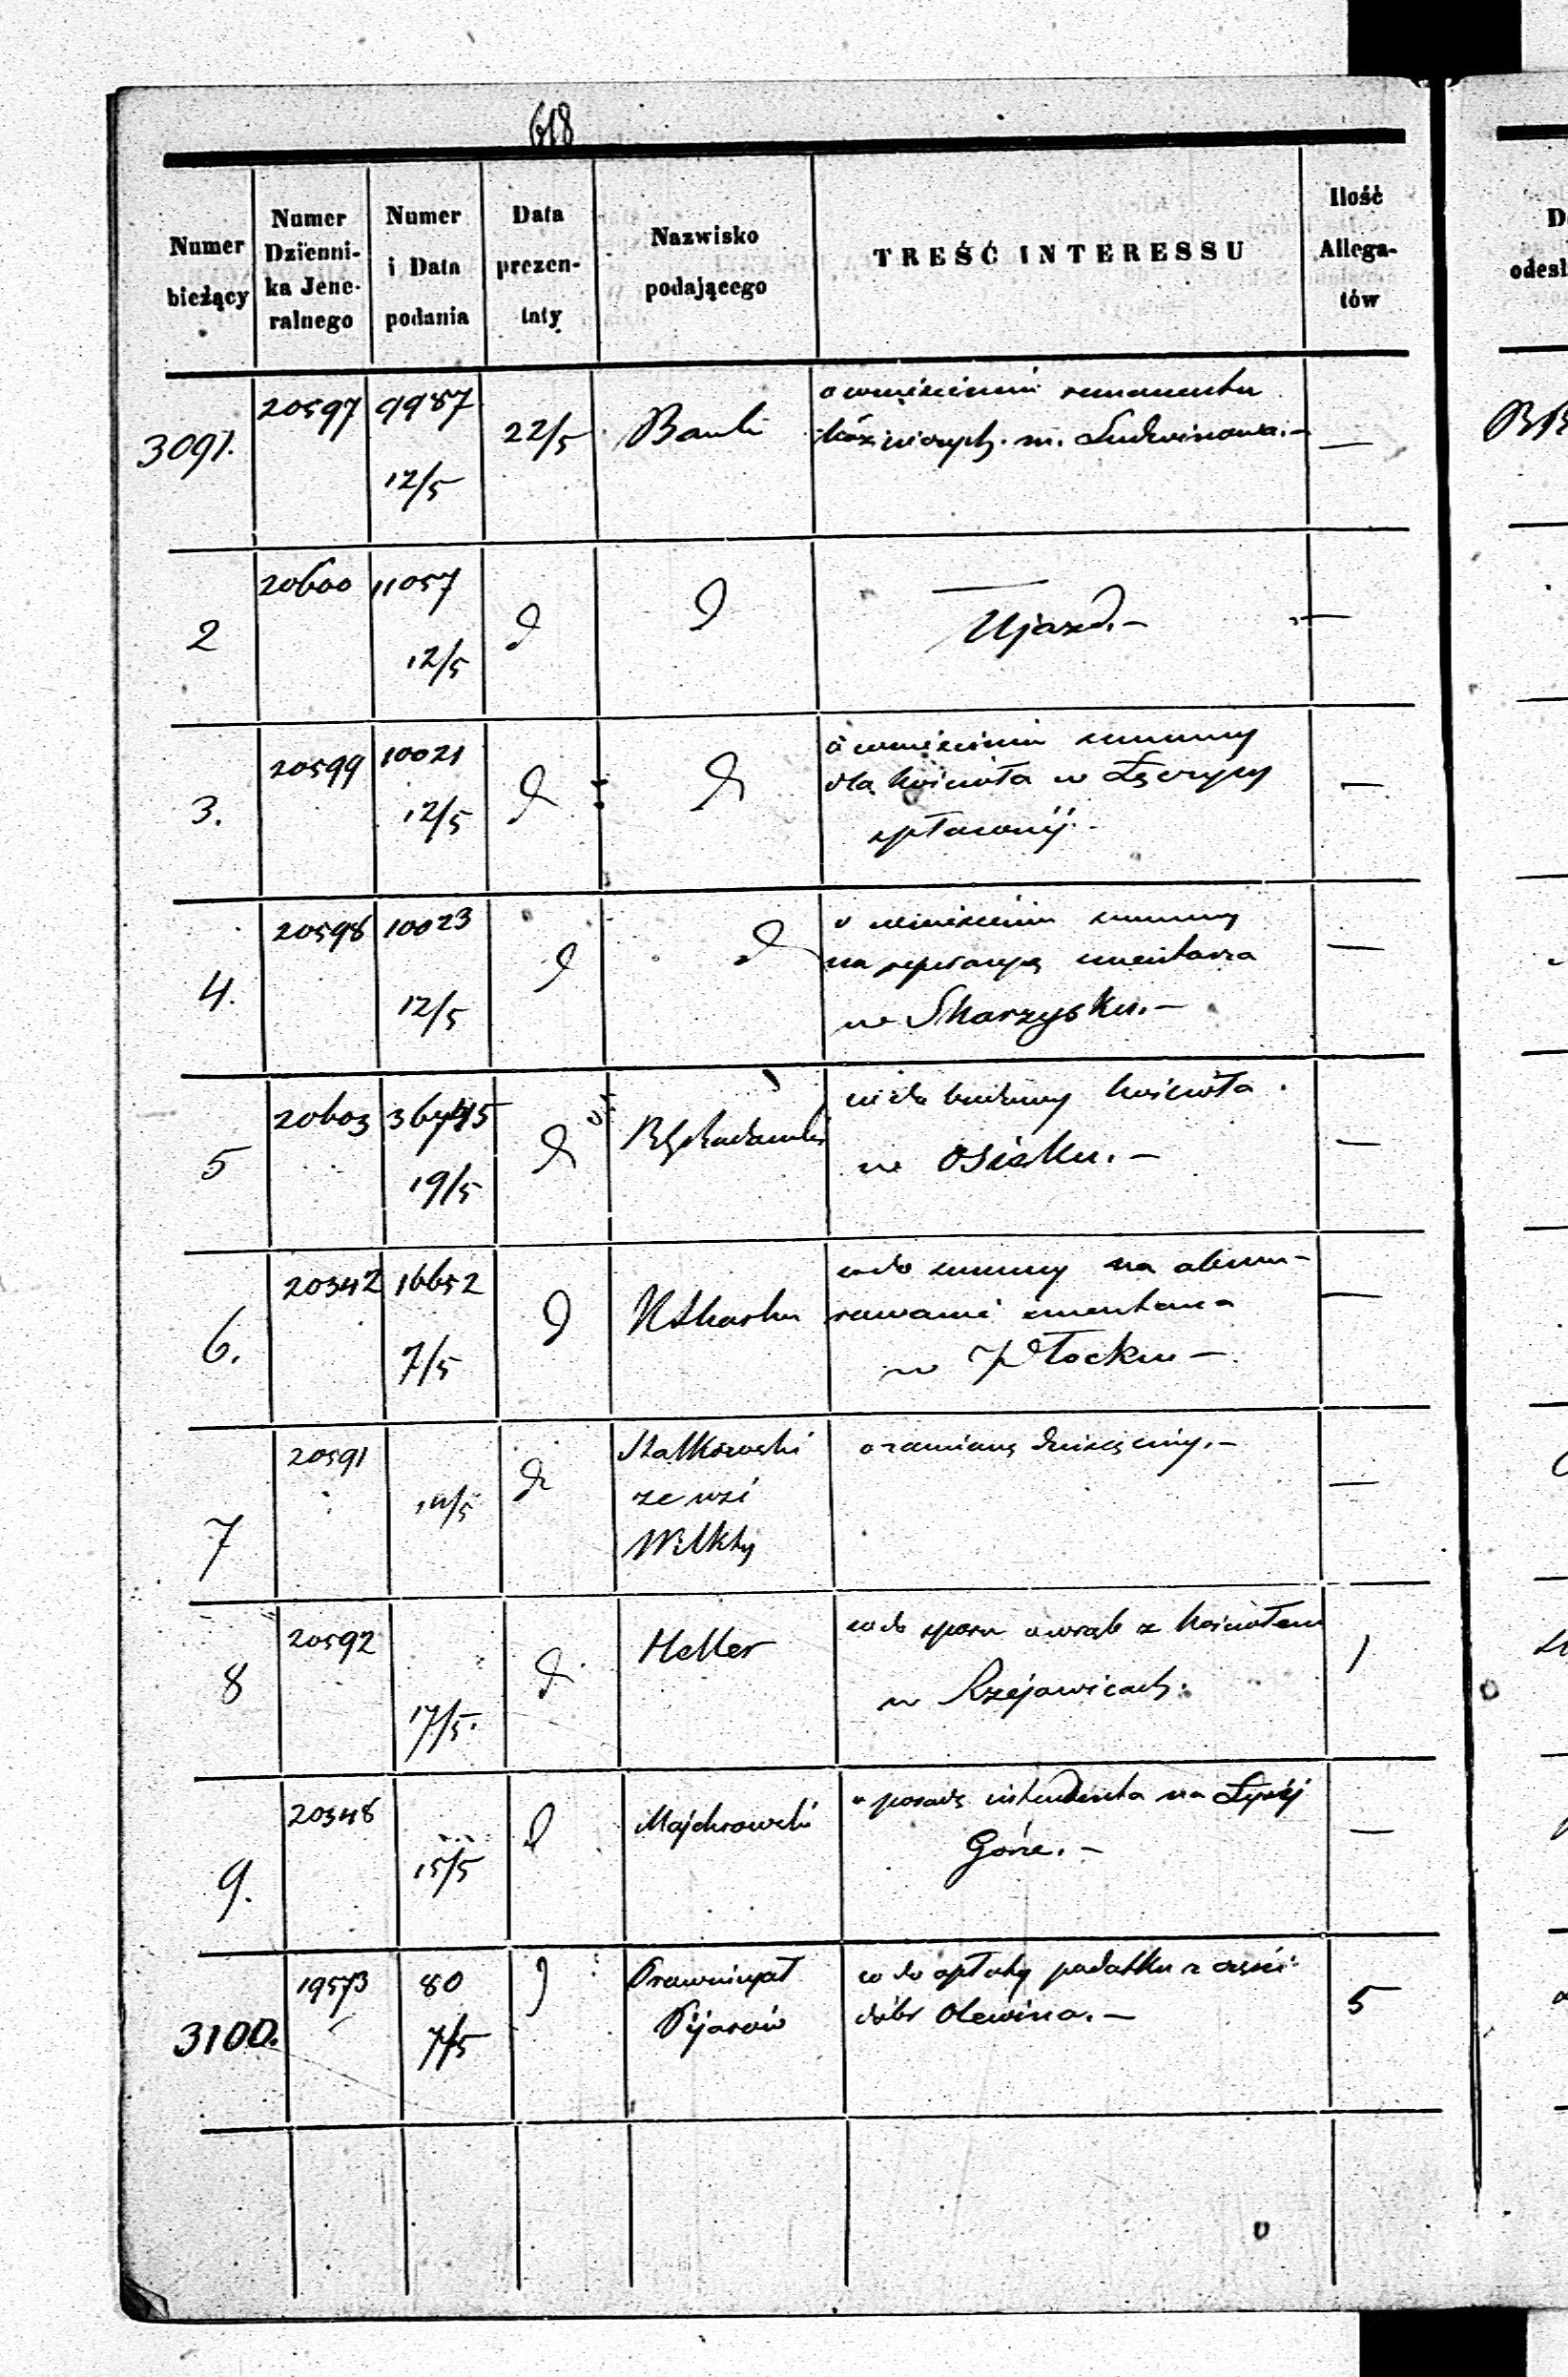 618
Numer bieżący
Numer Dzienni-ka Jene-ralnego
Numer i Data podania
Data prezen-taty
Nazwisko podającego
TREŚĆ INTERESSU
Ilość Allega-tów
3091. 20597 9987 12/5 22/5 Bank
o umieszczeniu remanentu
m. Ludwinowa.— —
2 20600 11057 12/5 d d
— Ujazd.— —
3. 20599 10021 12/5 d d
o umieszczeniu summy
dla kościoła w Łęczycy
spłaconej.— —
4. 20598 10023 12/5 d d
o umieszczeniu summy
na reperacyę cmentarza
w Skarzysku.— —
5 20603 36745 19/5 d
co do budowy kościoła
w Osieku.— —
6. 20342 16652 7/5 d
co do summy na obmu-
rowanie cmentarza
w Płocku— —
7 20591 d
ze wsi
o zamianę dziesięciny.— —
8 20592 17/5. d Heller
co do sporu o wrąb z kościołem
w Rzejowicach. 1
9. 20348 15/5 d Majchrowski
o posadę intendenta na Łysej
Górze.— —
3100. 19573 80 7/5 d
Prowincyał
Pijarów
co do opłaty podatku z części
dóbr Olewina.— 5
D
odesł